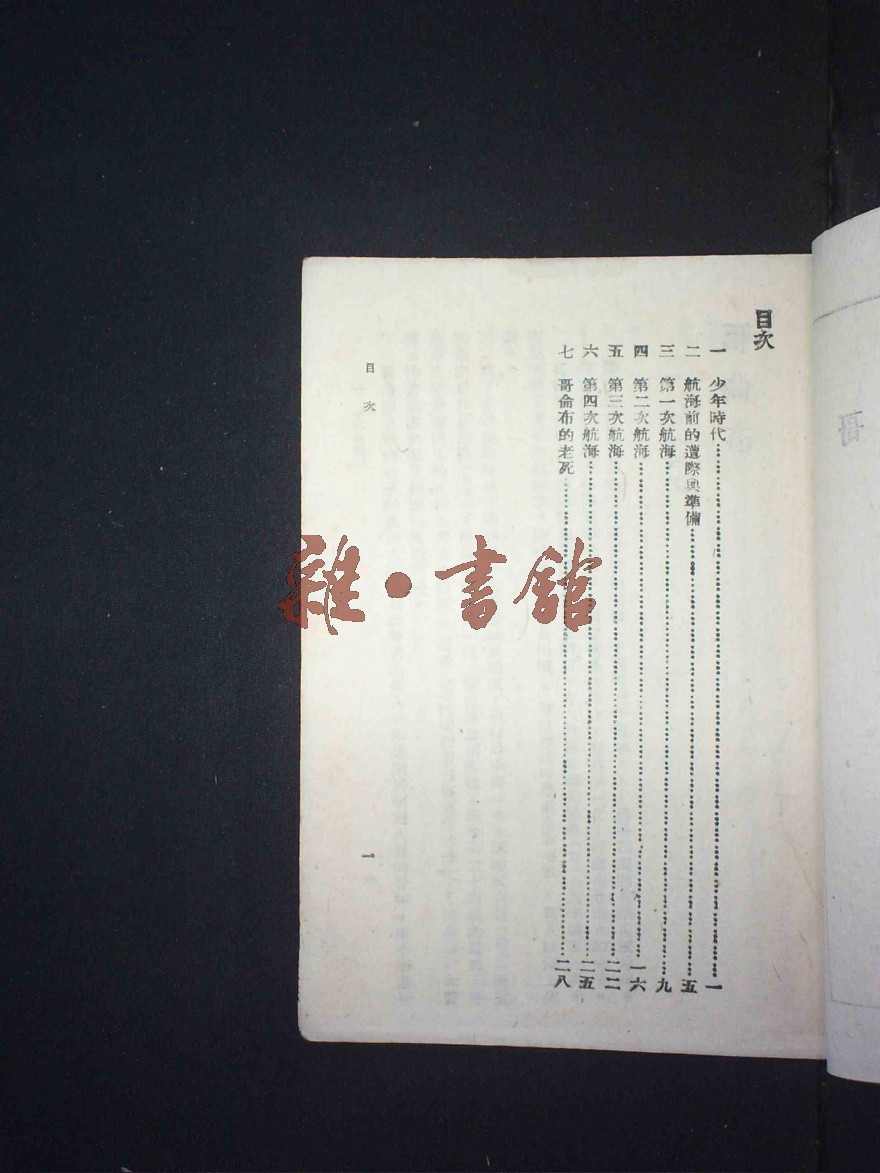 目次
一 少年時代……一
二 航海前的遭際與準備……五
三 第一次航海……九
四 第二次航海……一六
五 第三次航海……二二
六 第四次航海……二五
七 哥侖布的老死……二八
目次
一
哥
雜·書館